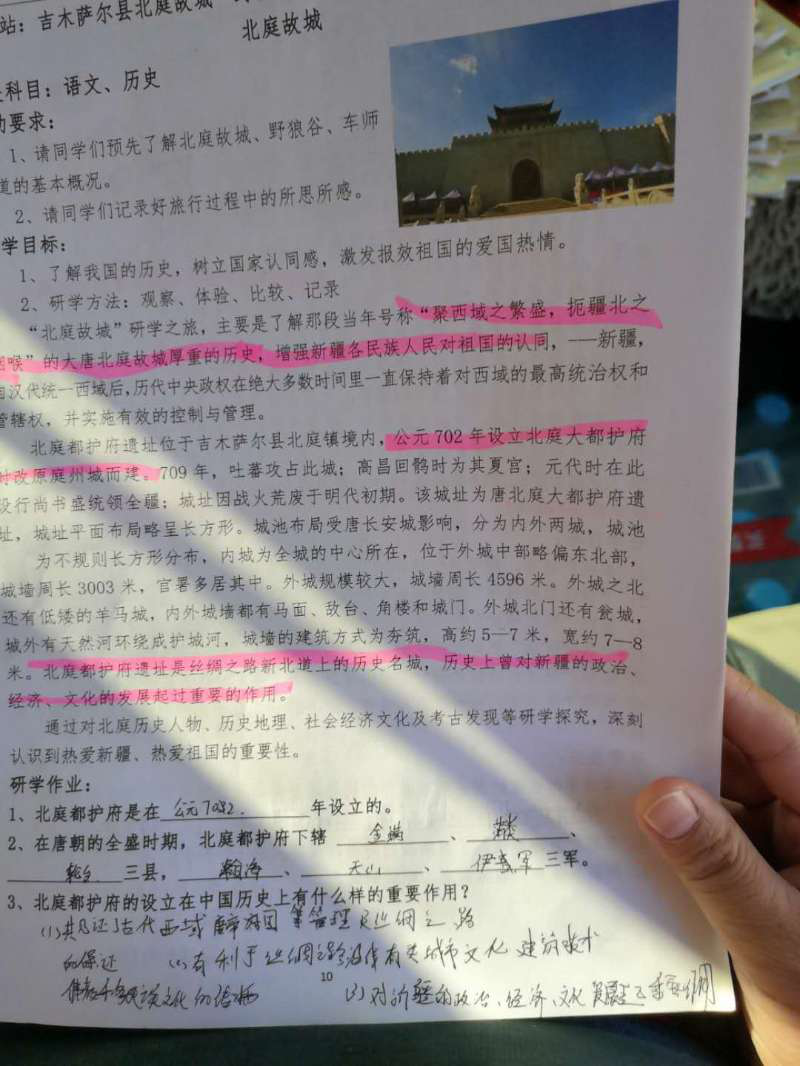 站：吉木萨尔县北庭故城
北庭故城
科目：语文、历史
要求：
1、请同学们预先了解北庭故城、野狼谷、车师
道的基本概况。
2、请同学们记录好旅行过程中的所思所感。
学目标：
1、了解我国的历史，树立国家认同感，激发报效祖国的爱国热情。
2、研学方法：观察、体验、比较、记录
“北庭故城”研学之旅，主要是了解那段当年号称“聚西域之繁盛，扼疆北之
咽喉”的大唐北庭故城厚重的历史，增强新疆各民族人民对祖国的认同，——新疆，
自汉代统一西域后，历代中央政权在绝大多数时间里一直保持着对西域的最高统治权和
管辖权，并实施有效的控制与管理。
北庭都护府遗址位于吉木萨尔县北庭镇境内，公元 702 年设立北庭大都护府
时改原庭州城而建。709 年，吐蕃攻占此城；高昌回鹘时为其夏宫；元代时在此
设行尚书盛统领全疆；城址因战火荒废于明代初期。该城址为唐北庭大都护府遗
址，城址平面布局略呈长方形。城池布局受唐长安城影响，分为内外两城，城池
为不规则长方形分布，内城为全城的中心所在，位于外城中部略偏东北部，
城墙周长 3003 米，官署多居其中。外城规模较大，城墙周长 4596 米。外城之北
还有低矮的羊马城，内外城墙都有马面、敌台、角楼和城门。外城北门还有瓮城，
城外有天然河环绕成护城河，城墙的建筑方式为夯筑，高约 5—7 米，宽约 7—8
米。北庭都护府遗址是丝绸之路新北道上的历史名城，历史上曾对新疆的政治、
经济、文化的发展起过重要的作用。
通过对北庭历史人物、历史地理、社会经济文化及考古发现等研学探究，深刻
认识到热爱新疆、热爱祖国的重要性。
研学作业：
1、北庭都护府是在 公元7032. 年设立的。
2、在唐朝的全盛时期，北庭都护府下辖 金满 、 、
轮台 三县， 瀚海 、 天山 、 伊 军 三军。
3、北庭都护府的设立在中国历史上有什么样的重要作用？
(1)共见证了古代西域 等管理 丝绸之路
的保证 (2)有利于丝绸之路沿 城市文化 建筑技术
文化的
10
(3)对新疆的政治、经济、文化发展